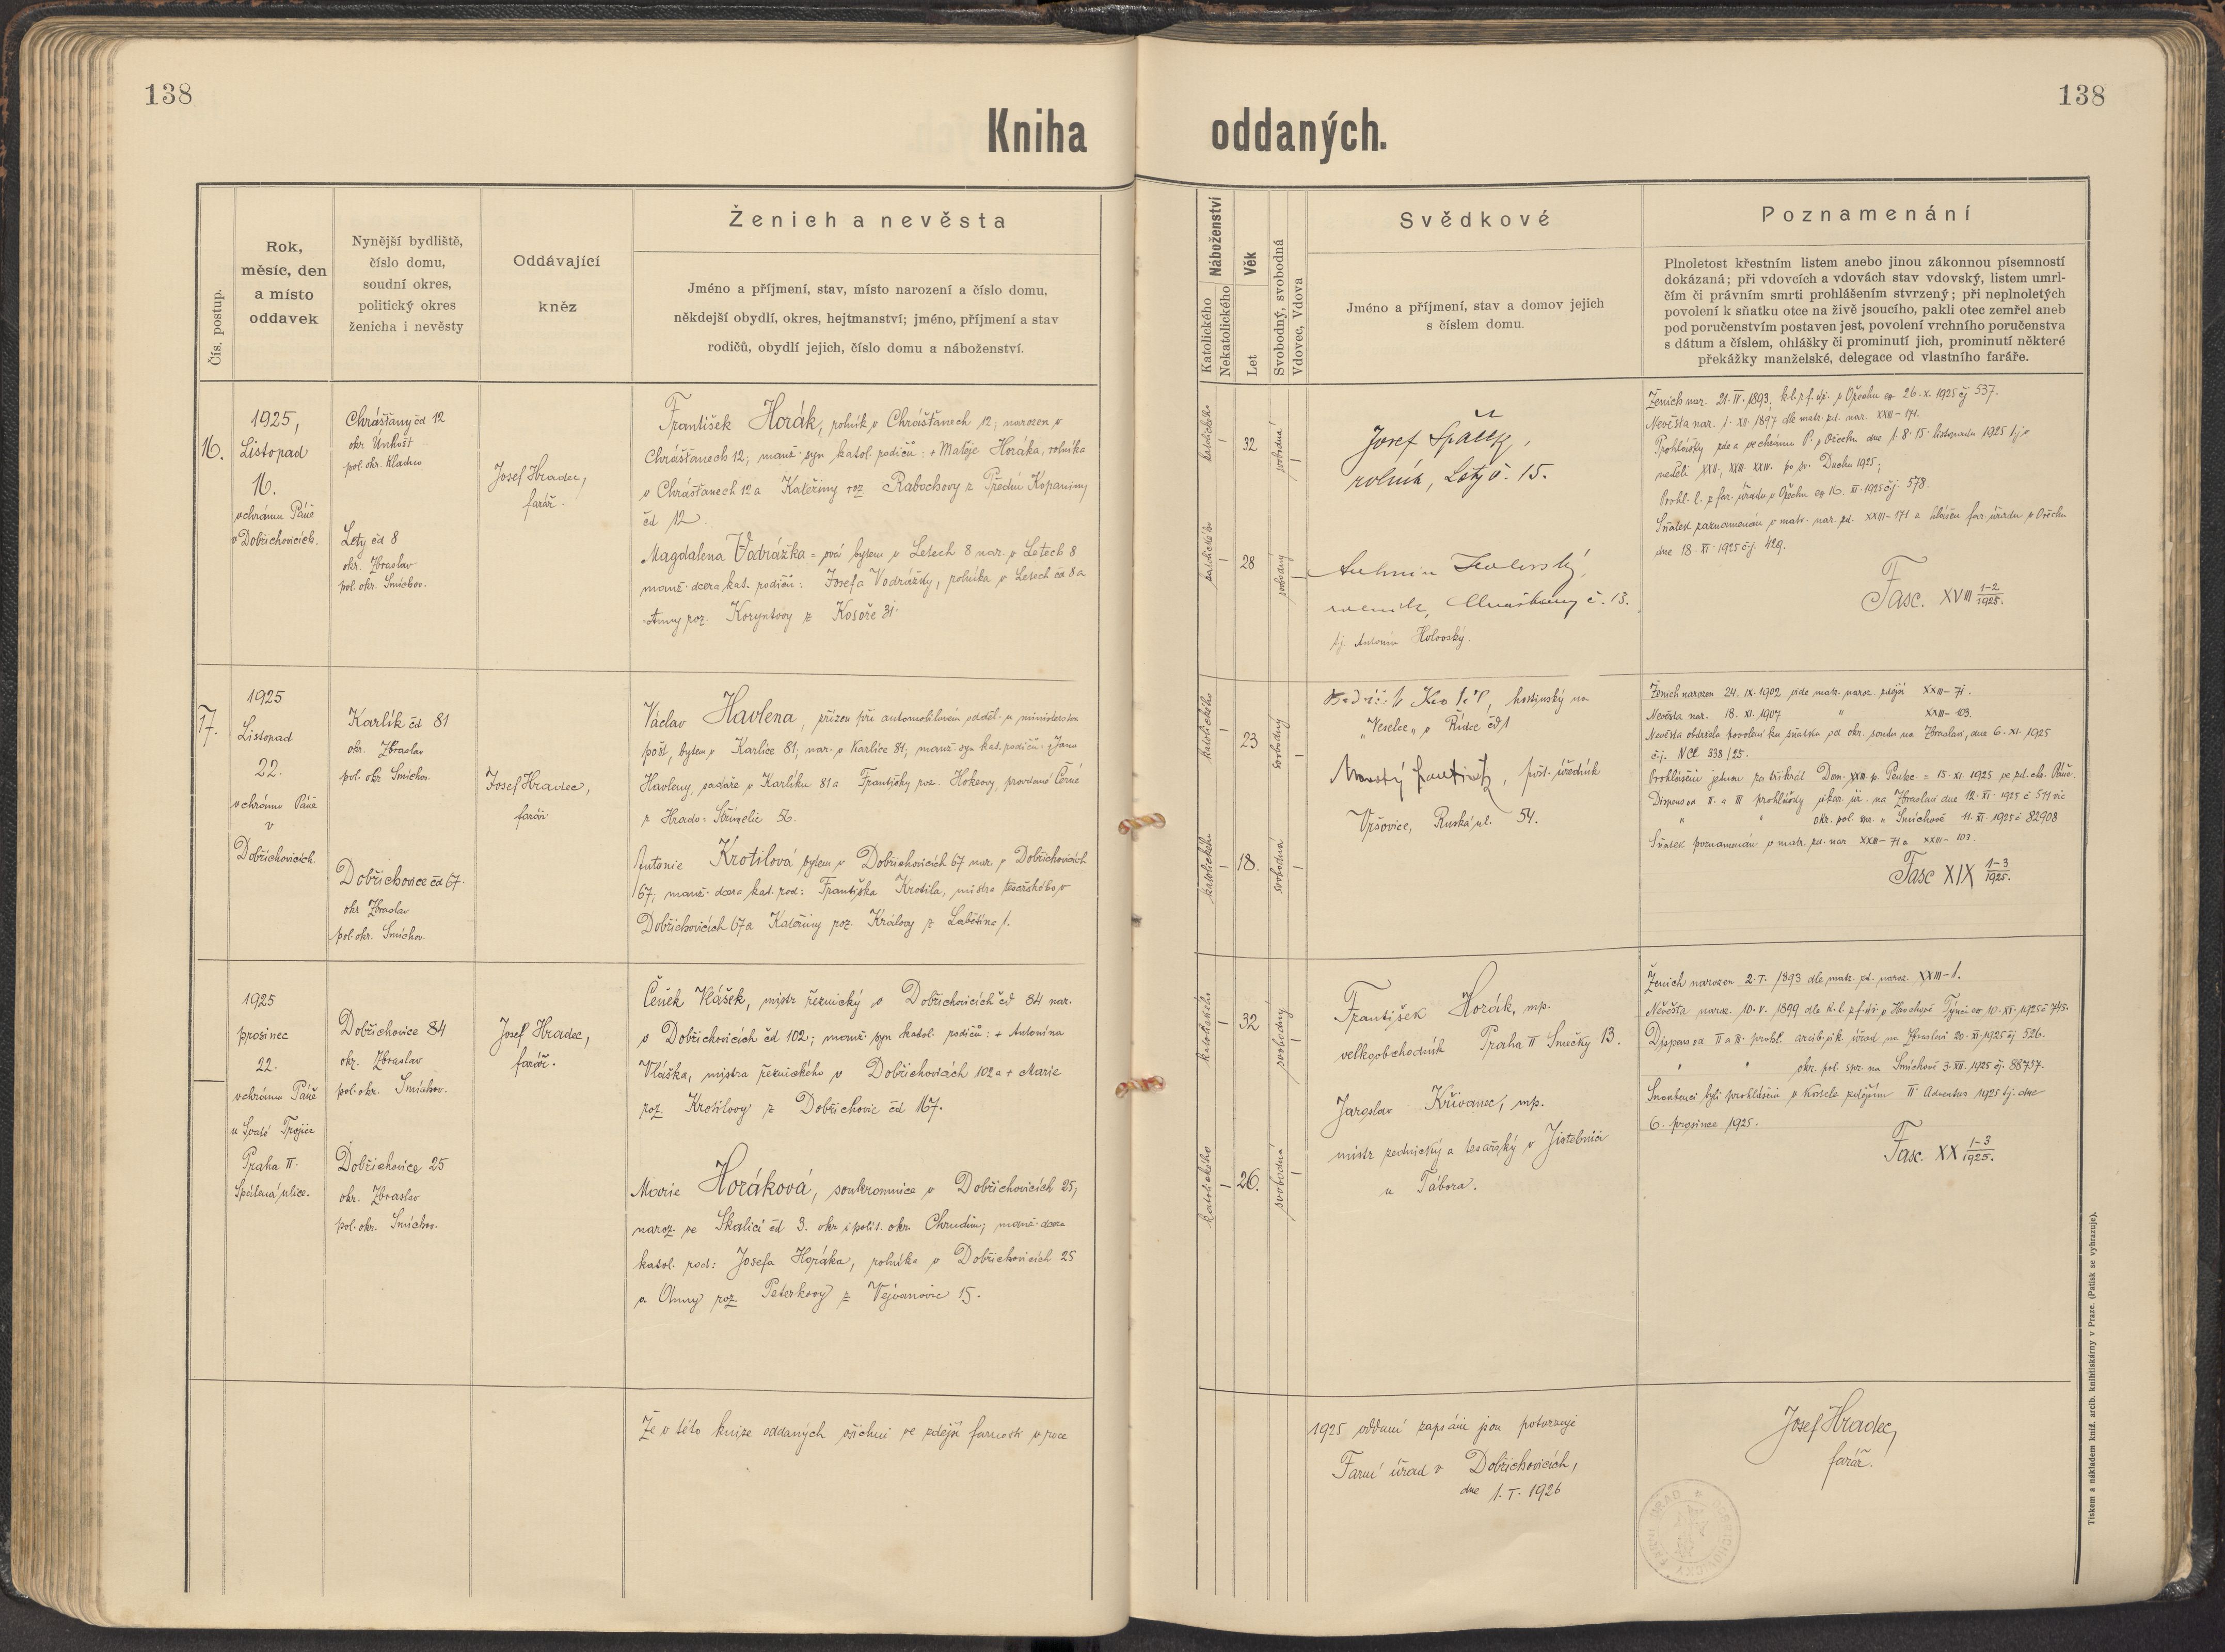 138
138
Kniha
oddaných.
Čís. postup.
Rok,
měsíc, den
a místo
oddavek
Nynější bydliště,
číslo domu,
soudní okres,
politický okres
ženicha i nevěsty
Oddávající
kněz
Ženich a nevěsta
Jméno a příjmení, stav, místo narození a číslo domu,
někdejší obydlí, okres, hejtmanství; jméno, příjmení a stav
rodičů, obydlí jejich, číslo domu a náboženství.
Náboženství
Katolického
Nekatolického
Věk
Let
Svobodný, svobodná
Vdovec, Vdova
Svědkové
Jméno a příjmení, stav a domov jejich
s číslem domu.
Poznamenání
Plnoletost křestním listem anebo jinou zákonnou písemností
dokázaná; při vdovcích a vdovách stav vdovský, listem umrl-
čím či právním smrti prohlášením stvrzený; při neplnoletých
povolení k sňatku otce na živě jsoucího, pakli otec zemřel aneb
pod poručenstvím postaven jest, povolení vrchního poručenstva
s dátum a číslem, ohlášky či prominutí jich, prominutí některé
překážky manželské, delegace od vlastního faráře.
16.
1925,
Listopad
16.
v chrámu Páně
v Dobřichovicích.
Chrášťany čd 12
okr. Unhošť
pol. okr. Kladno
Lety čd 8
okr. Zbraslav
pol. okr. Smíchov.
Josef Hradec,
farář.
František Horák, rolník v Chrášťanech 12; narozen v
Chrášťanech 12; manž. syn katol. rodičů: + Matěje Horáka, rolníka
v Chrášťanech 12 a Kateřiny roz. Rabochovy z Přední Kopaniny
čd 12.
Magdalena Vodrážka = ová bytem v Letech 8 nar. v Letech 8
manž. dcera kat. rodičů: Josefa Vodrážky, rolníka v Letech čd 8 a
Anny roz. Koryntovy z Kosoře 31.
katolického
32
svobodný
katolického
28
Josef
rolník, Lety č. 15.
rolník, Chrášťany č. 13.
tj. Antonín Holovský.
Ženich nar. 21. IV. 1893, k.l. z f. úř. v Ořechu ex 26. X. 1925 čj 537.
Nevěsta nar. 1. XII. 1897 dle matr. zd. nar. XXIII-171.
Prohlášky zde a ve chrámu P. v Ořechu dne 1. 8. 15. listopadu 1925 tj. v
neděli XXII, XXIII. XXIV. po sv. Duchu 1925;
Prohl. l. z far. úřadu v Ořechu ex 16. XI. 1925 čj. 578.
Sňatek zaznamenán v matr. nar. zd. XXIII-171 a hlášen far. úřadu v Ořechu
dne 18. XI. 1925 čj. 429.
Fasc. XVIII 1-2/1925.
17.
1925
Listopad
22.
v chrámu Páně
v
Dobřichovicích
Karlík čd 81
okr. Zbraslav
pol. okr. Smíchov.
Dobřichovice čd 67.
okr. Zbraslav
pol. okr. Smíchov.
Josef Hradec,
farář.
Václav Havlena, zřízen. při automobilním odděl. v ministerstvu
pošt, bytem v Karlíce 81; nar. v Karlíce 81; manž. syn kat. rodičů: Jana
Havleny, sadaře v Karlíku 81 a Františky roz.
z Hradc. Střimelic 56.
Antonie Krotilová bytem v Dobřichovicích 67 nar. v Dobřichovicích
67; manž. dcera kat. rod: Františka Krotila, mistra tesařského v
Dobřichovicích 67 a Kateřiny roz. Královy z
katolického
23
svobodný
katolického
18.
svobodná
hostinský na
"Veselce" v Řídce čd 1
pošt. úředník
Vršovice, Ruská ul. 54.
Ženich narozen 24. IX. 1902 vide matr. naroz. zdejší XXIII-71.
Nevěsta nar. 18. XI. 1907 " XXIII-103.
Nevěsta obdržela povolení ku sňatku od okr. soudu na Zbraslavi, dne 6. XI. 1925
č.j. 338/25.
Prohlášeni jednou za třikrát Dom. XXIII. p. Pentec = 15. XI. 1925 ve zd. ch. Páně.
Dispens od II. a III prohlášky vikar. úř. na Zbraslavi dne 12. XI. 1925 č 511 vic
" " okr. pol. spr. " Smíchově 11. XI. 1925 č 82908
Sňatek poznamenán v matr. zd. nar XXIII-71 a XXIII-103.
Fasc XIX 1-3/1925.
1925
prosinec
22.
v chrámu Páně
u Svaté Trojice
Praha II.
Spálená ulice.
Dobřichovice 84
okr. Zbraslav
pol. okr. Smíchov.
Dobřichovice 25
okr. Zbraslav
pol. okr. Smíchov.
Josef Hradec,
farář.
Čeněk Vlášek, mistr řeznický v Dobřichovicích čd 84 nar.
v Dobřichovicích čd 102; manž. syn katol. rodičů: + Antonína
Vláška, mistra řeznického v Dobřichovicích 102 a + Marie
roz. Krotilovy z Dobřichovic čd 167.
Marie Horáková, soukromnice v Dobřichovicích 25,
naroz. ve Skalici čd 3. okr i polit. okr. Chrudim; manž. dcera
katol. rod: Josefa Horáka, rolníka v Dobřichovicích 25
a Anny roz. Peterkovy z Vejvanovic 15.
katolického
32
svobodný
katolického
26.
svobodná
František Horák, mp.
velkoobchodník Praha II Smečky 13.
Jaroslav Křivanec, mp.
mistr zednický a tesařský v Jistebnici
u Tábora.
Ženich narozen 2. I. 1893 dle matr. zd. naroz. XXIII-1.
Nevěsta naroz. 10. V. 1899 dle k. l. z f. úř. v Hrochově Týnci ex 10. XI. 1925 č 745.
Dispens od II a III. prohl. arcib. vik úřad na Zbraslavi 20. XI. 1925 čj 526.
" " okr. pol. spr. na Smíchově 3. XII. 1925 čj. 88737.
Snoubenci byli prohlášeni v kostele zdejším II. Adventus 1925 tj. dne
6. prosince 1925.
Fasc. XX 1-3/1925.
Že v této knize oddaných všichni ve zdejší farnosti v roce
1925 oddaní zapsáni jsou potvrzuje
Farní úřad v Dobřichovicích,
dne 1. I. 1926
Josef Hradec,
farář.
Tiskem a nákladem kníž. arcib. knihtiskárny v Praze. (Patisk se vyhrazuje).